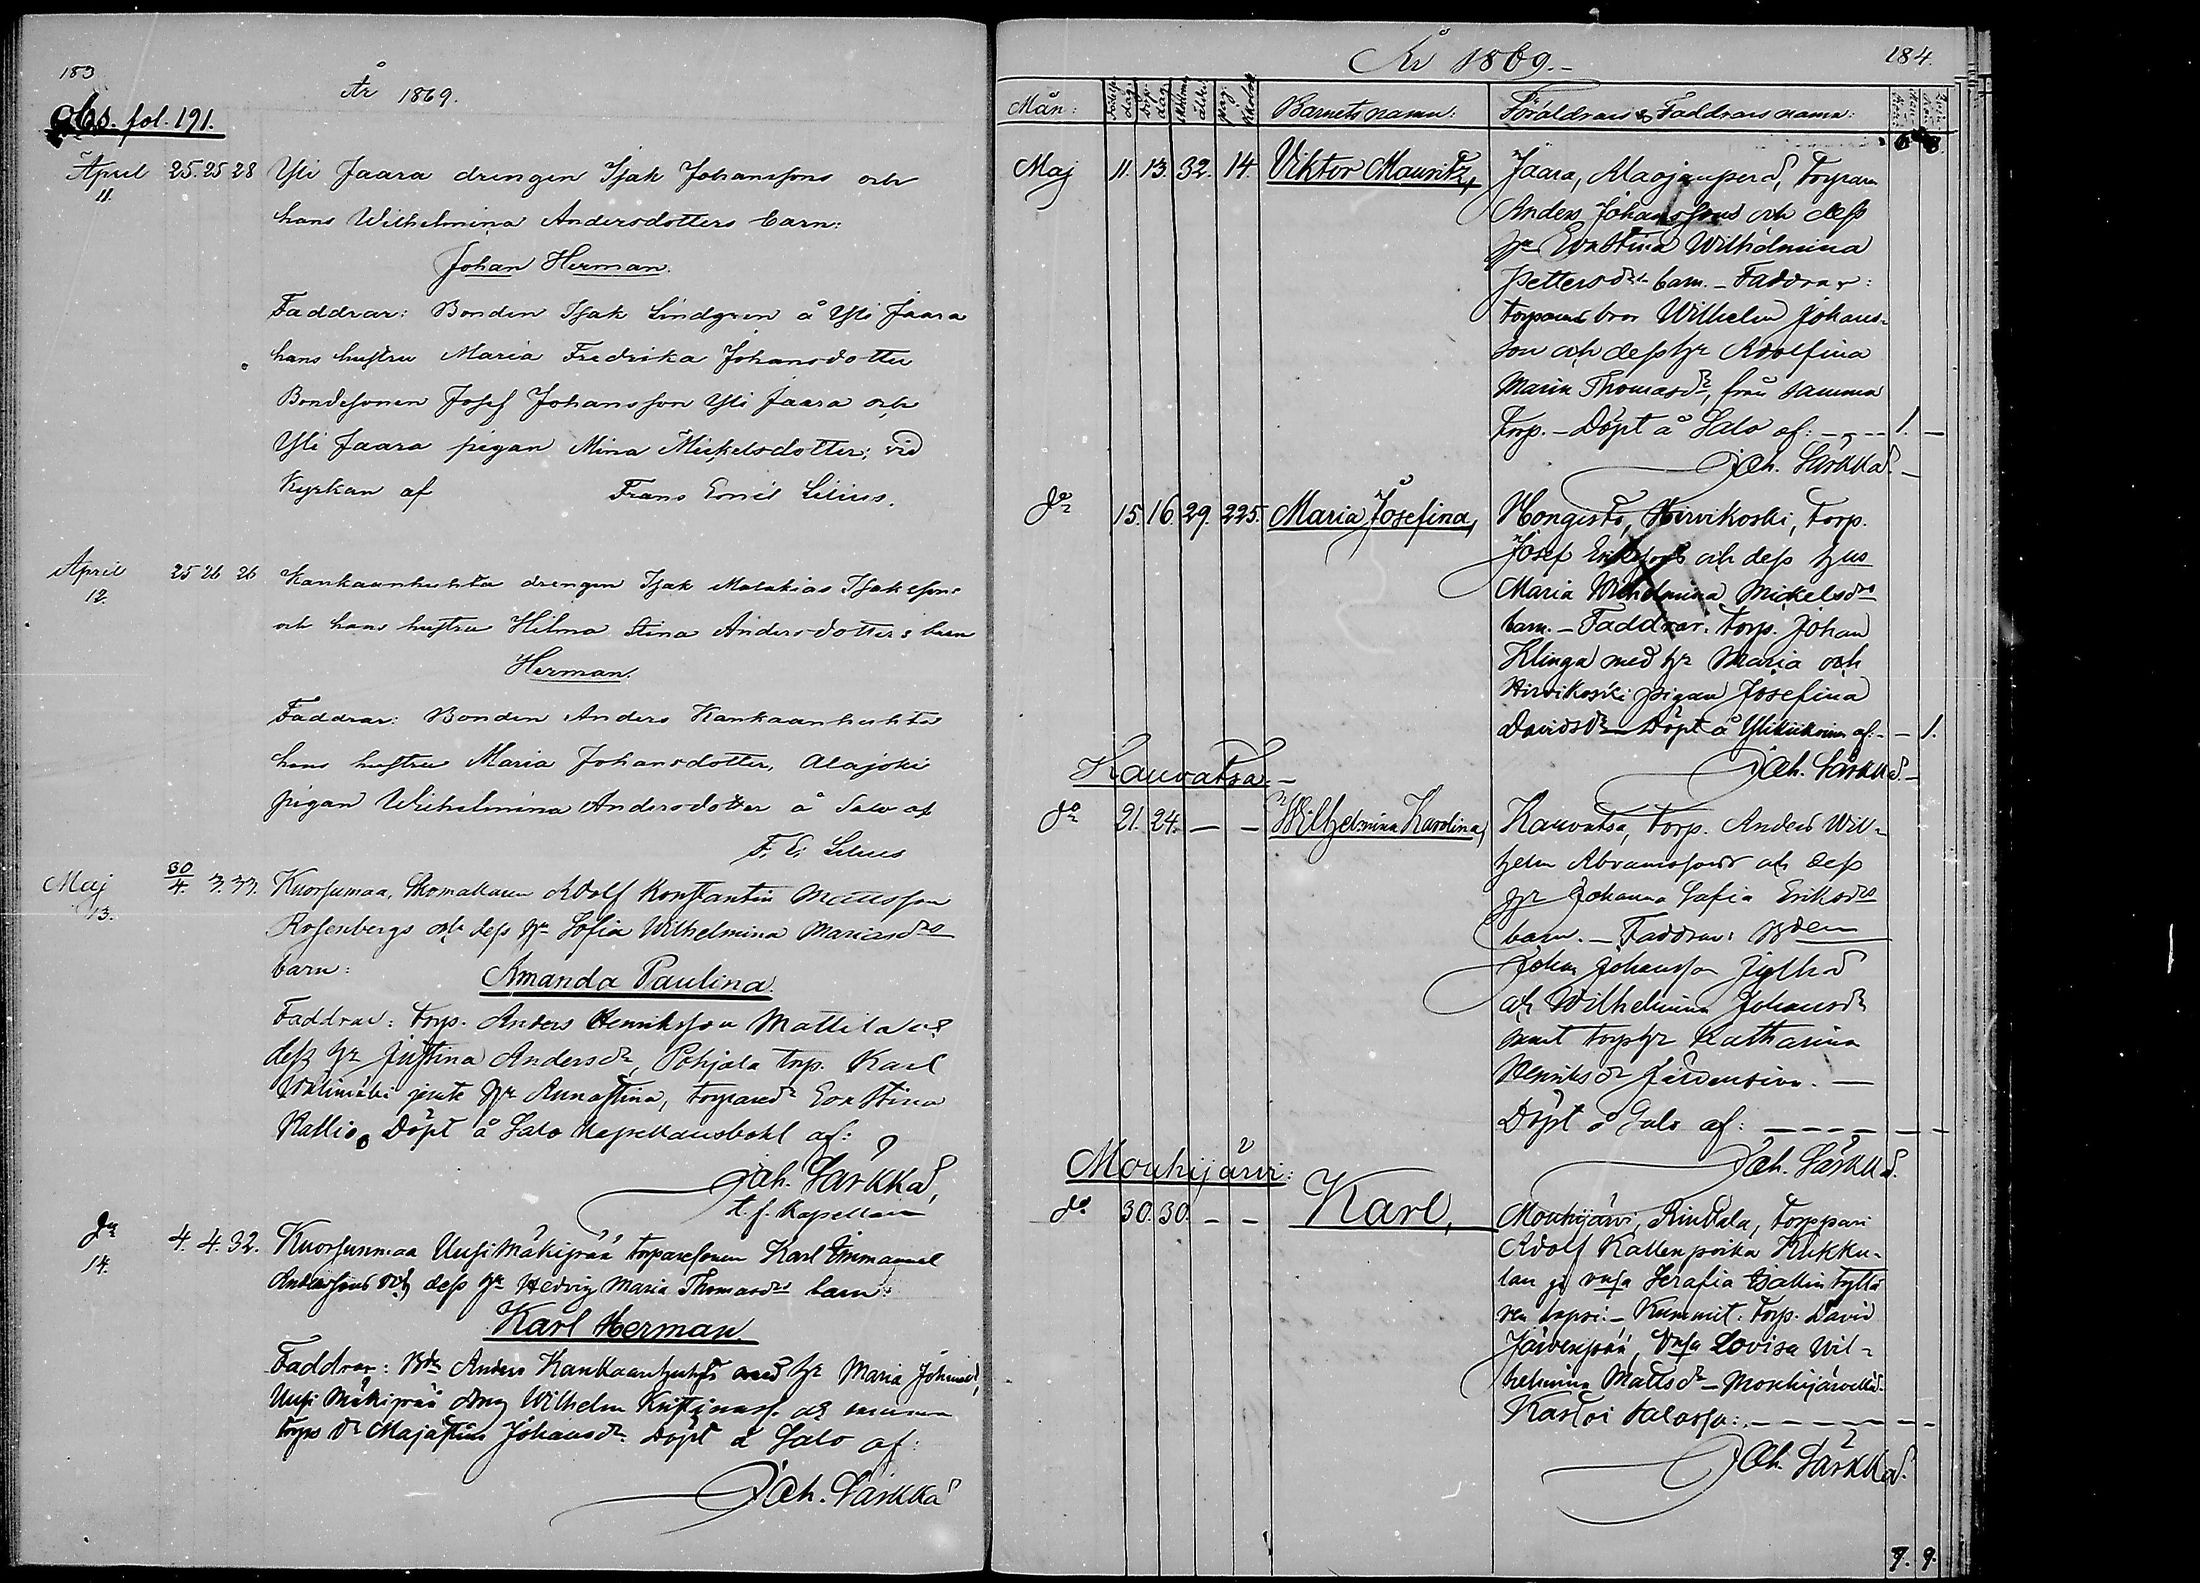 183
År 1869.
Obs. fol. 191.
April 25. 25 28 Yli Jaara drengen Isak Johanssons och
11.
hans Wilhelmina Andersdotters barn:
Johan Herman.
Faddrar: Bonden Isak Lindgren å Yli Jaara
hans hustru Maria Fredrika Johansdotter
Bondesonen Josef Johansson Yli Jaara och
Yli Jaara pigan Mina Mickelsdotter; vid
Kyrkan af Frans Emil Lilius.
April 25 26 26 Kankaanhuhta drengen Isak Malakias Isakssons
12.
och hans hustru Hilma Stina Andersdotters barn
Herman.
Faddrar: Bonden Anders Kankaanhuhta
hans hustru Maria Johansdotter, Alajoki
pigan Wilhelmina Andersdotter å Salo af
F. E. Lilius
Maj 30/4. 3. 33. Kuorsumaa, Adolf Konstantin Mattsson
13.
Rosenbergs och dess hr Sofia Wilhelmina
barn: Amanda Paulina.
Faddrar: Torp. Anders Henriksson Mattila och
dess hr Justina Andersdr, Pohjala torp. Karl
Välimäki hr Annastina, Eva Stina
Kallio. Döpt å Salo Kapellansbohl af:
Joh. Särkkä,
t. f. Kapellan
do 4. 4. 32. Kuorsunmaa Uusi Mäkipää torparesonen Karl Emmanuel
14.
Anderssons och dess hr Hedvig Maria Thomasdrs barn:
Karl Herman.
Faddrar: Bdn Anders Kankaanhuhta med hr Maria Johansdr,
Uusi Mäkipää dreng Wilhelm och
torps dr Majastina Johansdr. Döpt å Salo af:
Joh. Särkkä
År 1869.- 184.
Mån: Barnets namn: Föräldrars & Faddrars namn:
Maj 11. 13. 32. 14. Viktor Mauritz, Jaara, Torparn
Anders Johanssons och dess
hr Eva Stina Wilhelmina
Pettersdrs barn. - Faddrar:
torparens bror Wilhelm Johans-
son och dess hr Adolfina
Maria Thomasdr, från samma
Torp. - Döpt å Salo af: - - - 1. -
Joh. Särkkä.
do 15. 16. 29. 225. Maria Josefina, Hongisto, Hirvikoski, Torp.
Josef Erikssons och dess hus
Maria Wilhelmina Mickelsdrs
barn. - Faddrar: Torp. Johan
Klinga med hr Maria och
Hirvikoski pigan Josefina
Davidsdr Döpt å af: - - 1.
Joh. Särkkä.
Kauvatsa.-
do 21. 24. - - Wilhelmina Karolina, Kauvatsa, Torp. Anders Wil-
helm Abramssons och dess
hr Johanna Sofia Eriksdrs
barn. - Faddrar: Bden
Johan Johansson Jylhä
och Wilhelmina Johansdr
samt torphr Katharina
Henriksdr Järdensivu. -
Döpt å Salo af: - - - -
Joh. Särkkä.
Mouhijärvi:
do 30. 30. - - Karl, Mouhijärvi, Rintala, Torppari
Adolf Kallenpoika Kukku-
lan ja Serafia
lapsi: - Kummit: Torp. David
Järvenpää, Lovisa Wil-
helmina Mattsdr - Mouhijärvellä.
Kastoi Salossa: - - - -
Joh. Särkkä.
7. 9.